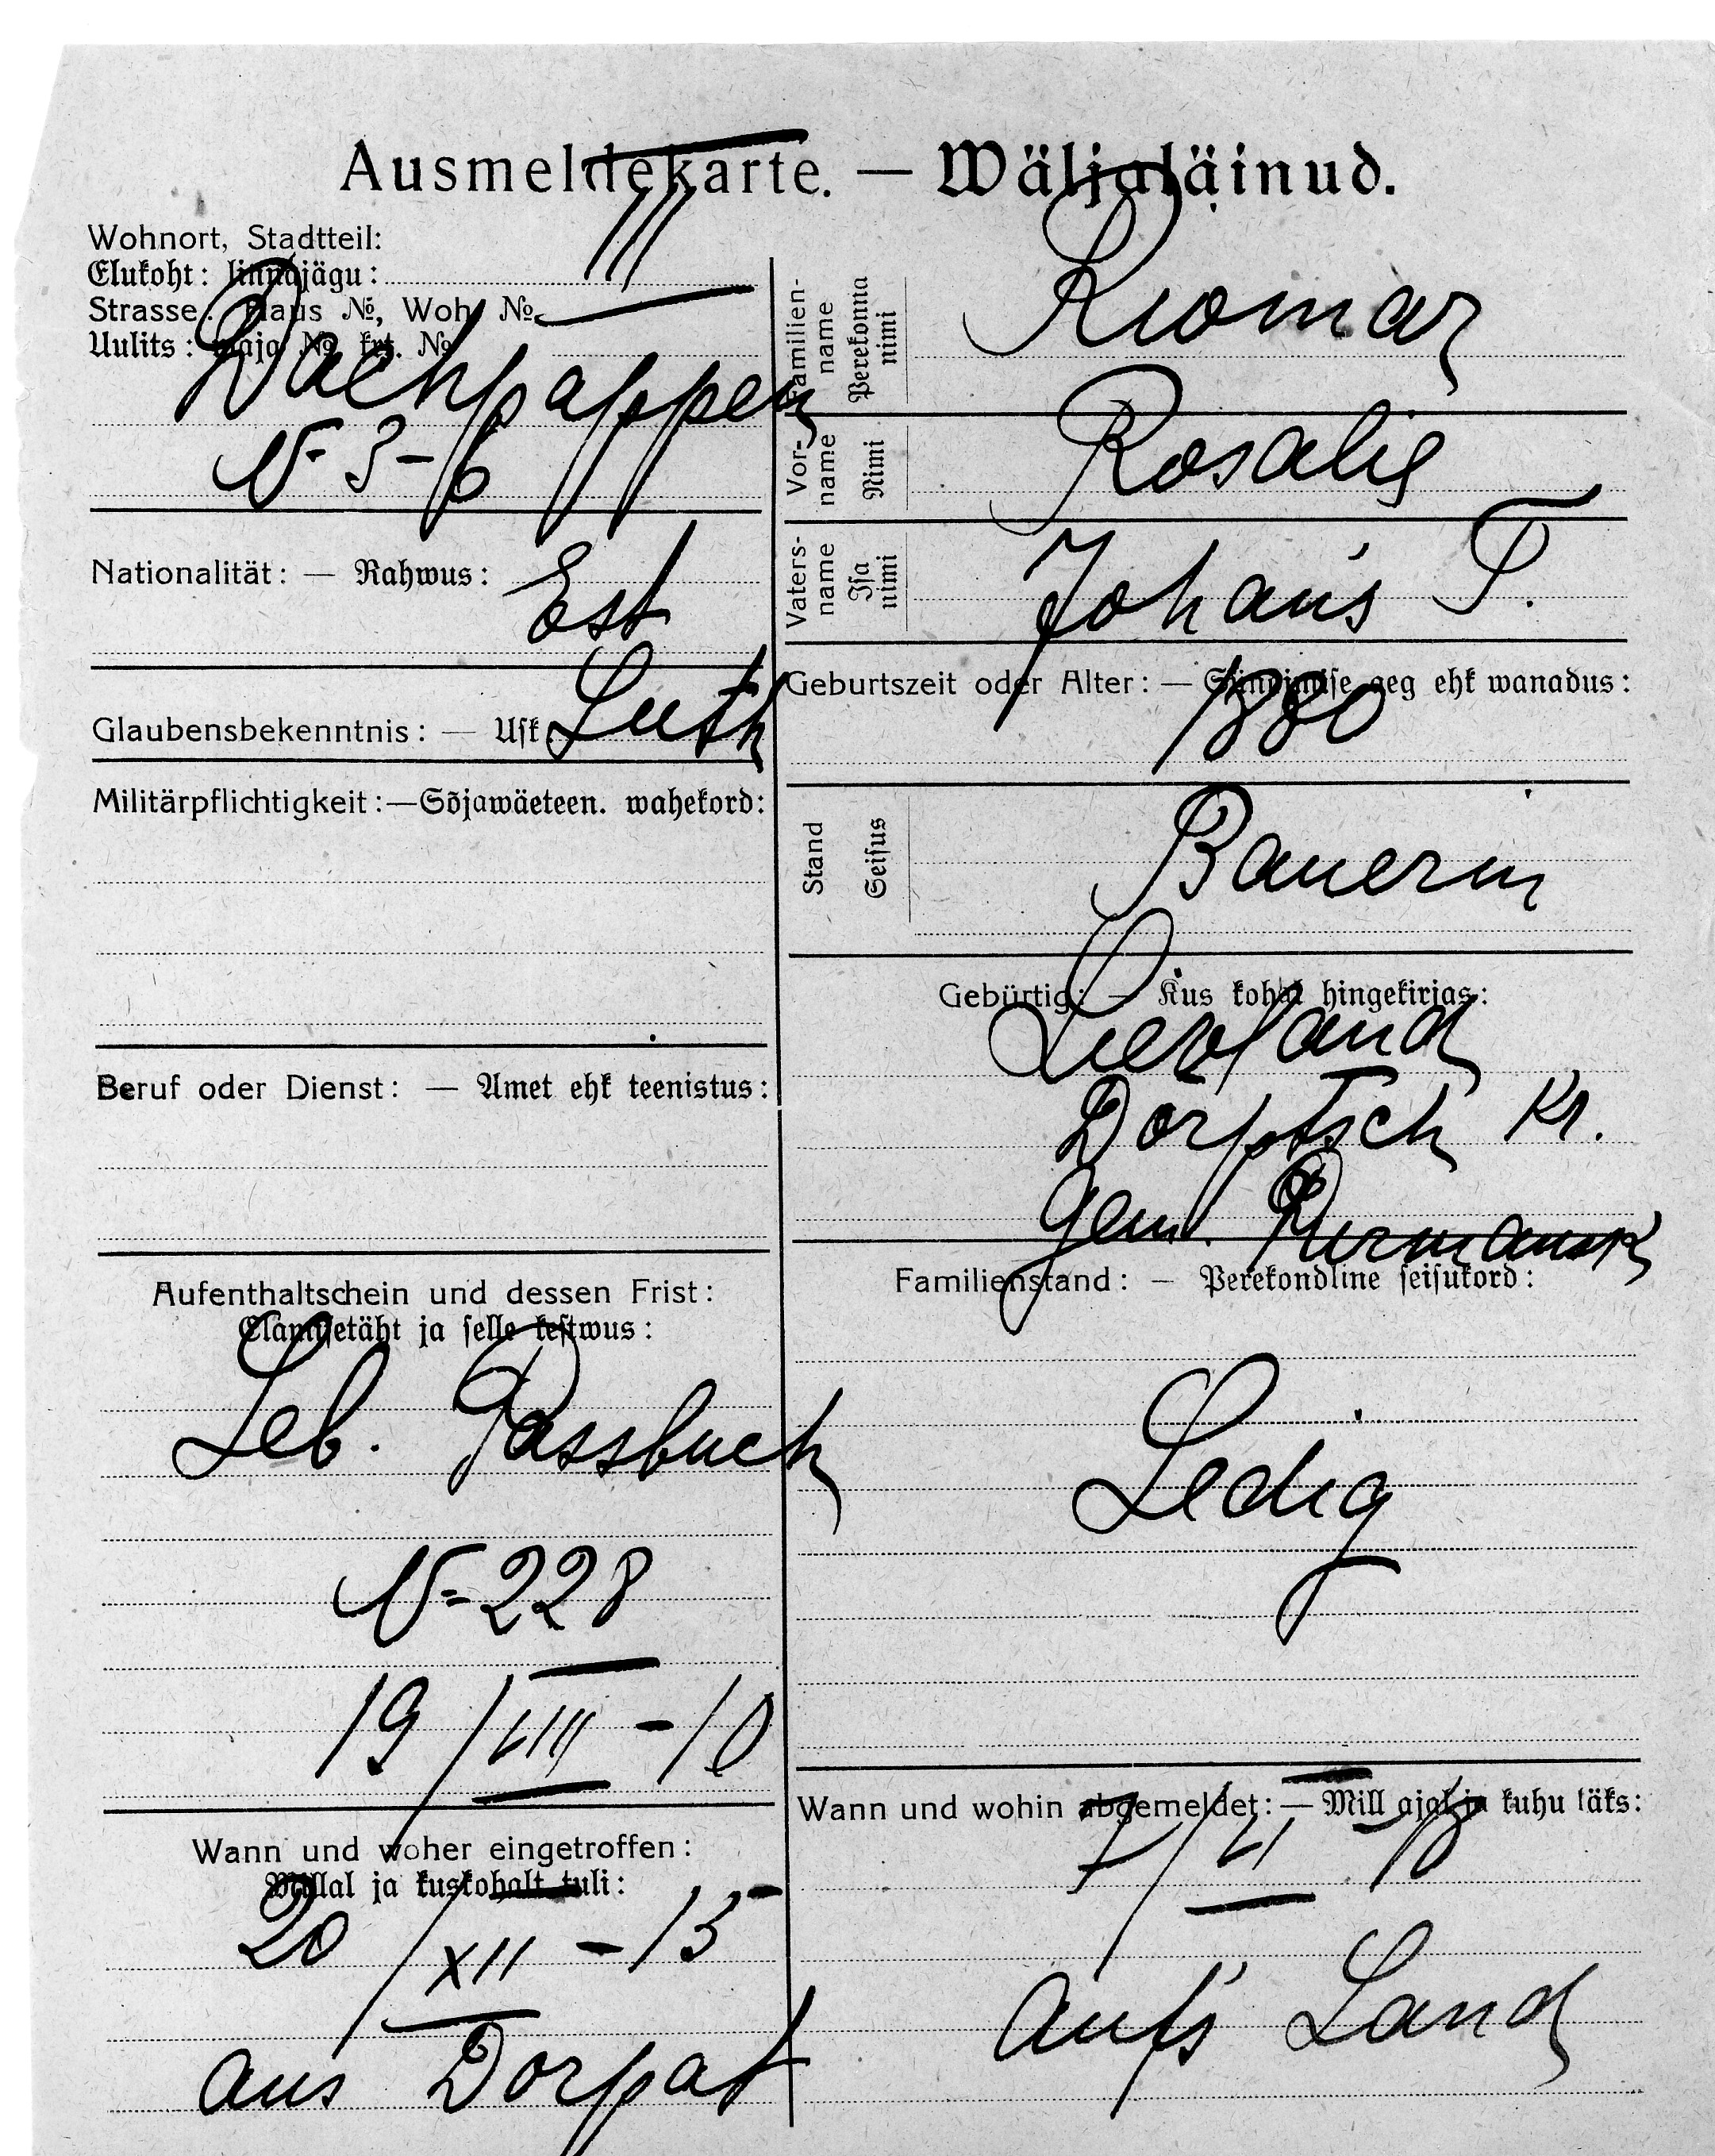 Ausmeldekarte. — Wäljaläinud.
Wohnort, Stadtteil:
Elukoht: linnajägu: III
Strasse: Haus №, Woh. №
Uulits: maja № krt. №
Dachpappen
№ 3-6
Nationalität: — Rahwus: Est
Glaubensbekenntnis: — Usk Luth
Militärpflichtigkeit:—Sõjawäeteen. wahekord:
Beruf oder Dienst: — Amet ehk teenistus:
Aufenthaltschein und dessen Frist:
Elamisetäht ja selle kestwus:
Leb. Passbuch
№ 228
19/VIII - 10
Wann und woher eingetroffen:
Millal ja kuskohalt tuli:
20/XII - 15
aus Dorpat
Familien-
name
Perekonna
nimi
Kiomar
Vor-
name
Nimi
Rosalie
Vaters-
name
Isa
nimi
Johan's T.
Geburtszeit oder Alter: — Sündimise aeg ehk wanadus:
1880
Stand
Seisus
Bäuerin
Gebürtig: — Kus kohal hingekirjas:
Livland
Dorptsch Kr.
Gem.
Familienstand: — Perekondline seisukord:
Ledig
Wann und wohin abgemeldet: — Mill ajal ja kuhu läks:
7/VI 18
auf's Land